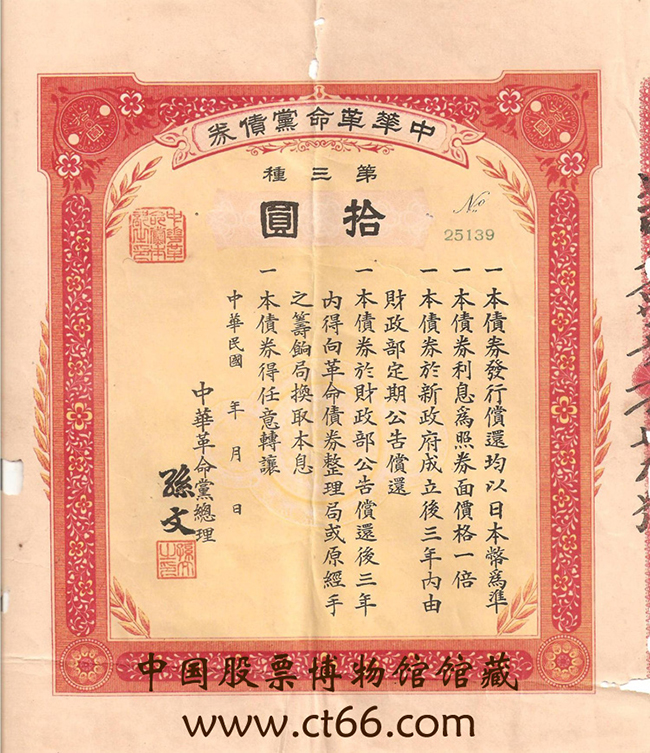 中華革命黨債券
第三種
拾圓
No
25139
一本債券發行償還均以日本幣爲準
一本債券利息爲照券面價格一倍
一本債券於新政府成立後三年內由
財政部定期公告償還
一本債券於財政部公告償還後三年
內得向革命債券整理局或原經手
之籌餉局換取本息
一本債券得任意轉讓
中華民國 年 月 日
中華革命黨總理
孫文
中国股票博物馆馆藏
www.ct66.com